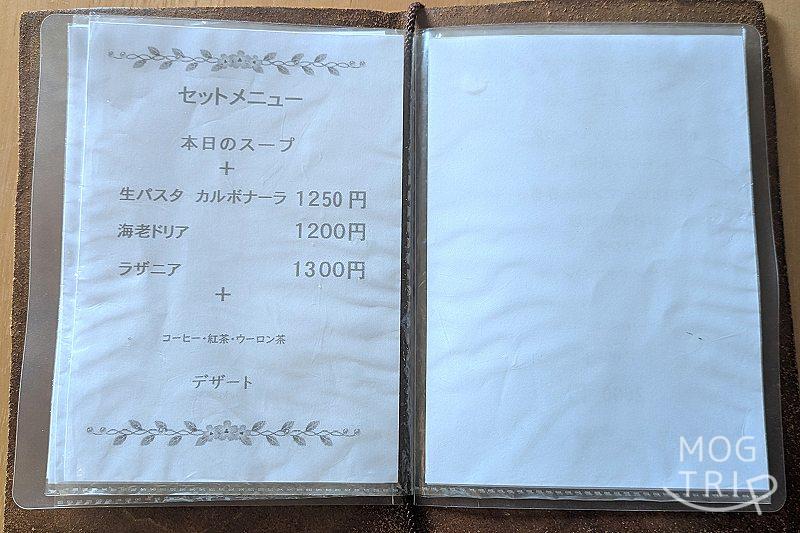 セットメニュー
本日のスープ
+
生パスタ カルボナーラ 1250円
海老ドリア 1200円
ラザニア 1300円
+
コーヒー・紅茶・ウーロン茶
デザート
MOG
TRIP